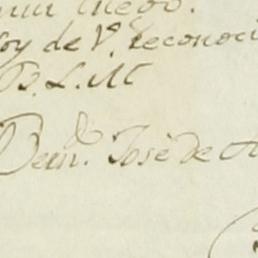 luego.
soy de V. reconoci
B. L. M
Bern.do José de A